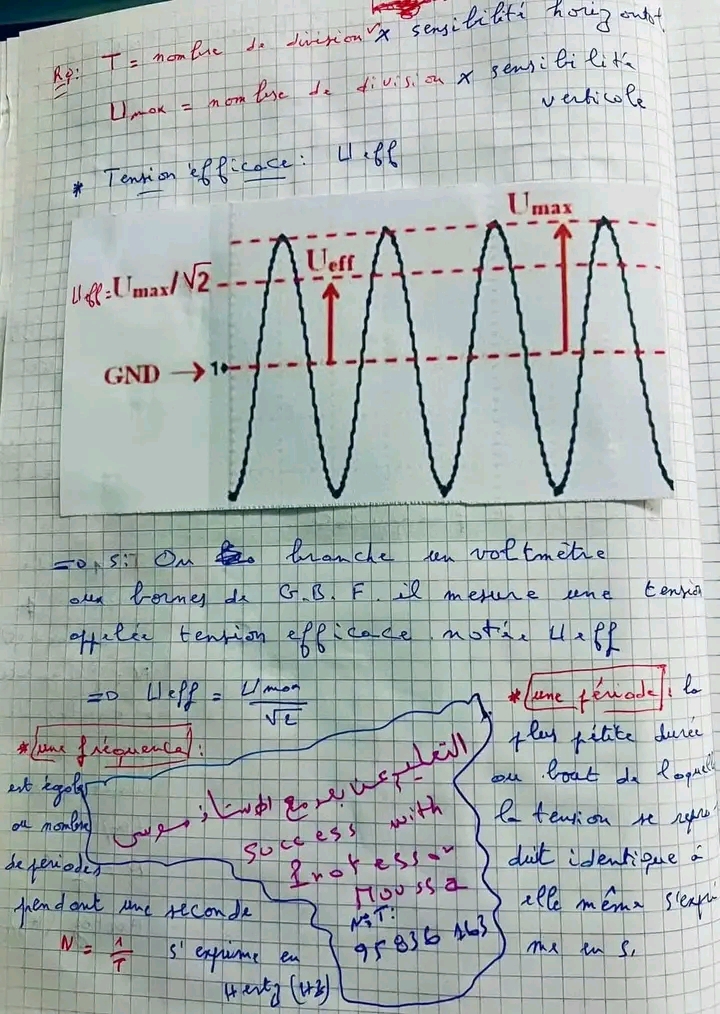 Rq: T = nombre de division x sensibilité horizontal
Umax = nombre de division x sensibilité
verticale
* Tension efficace : Ueff
Umax
Ueff
Ueff = Umax/√2
GND → 1
=> Si On branche un voltmètre
aux bornes de G.B.F. il mesure une tension
appelée tension efficace notée Ueff
=> Ueff = Umax/√2
* une fréquence :
est égale
au nombre
de périodes
pendant une seconde
N = 1/T s'exprime en
Hertz (Hz)
* une période : la
plus pétite durée
au bout de laquelle
la tension se repro
duit identique à
elle même s'expri
me en s.
مع الأستاذ موسى
success with
Professor
Moussa
N°T:
95 836 163